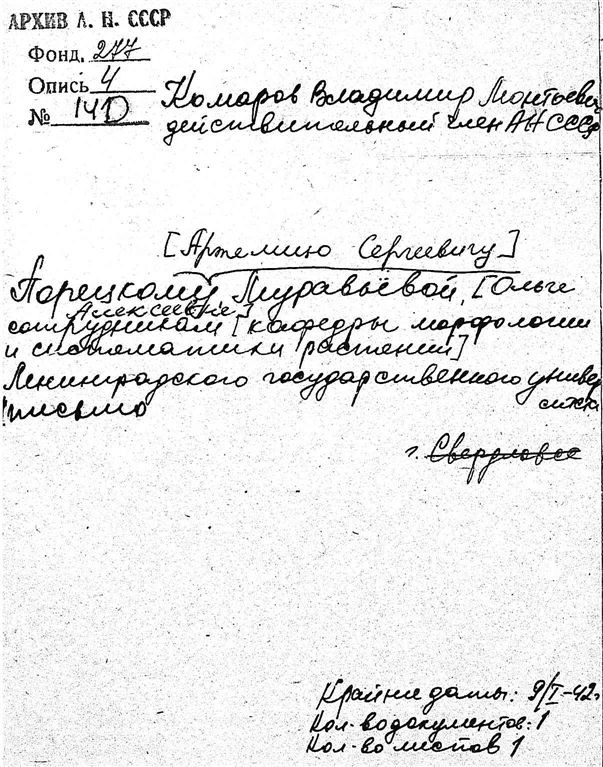 АРХИВ А. Н. СССР
Фонд. 277
Опись 4
№ 141
Комаров Владимир Леонтьевич
действительный член АН СССР
[Артемию Сергеевичу]
Порецкому, Муравьёвой, [Ольге
Алексеевне
сотрудникам [кафедры морфологии
и систематики растений]
Ленинградского государственного универ
ситета
письмо
г. Свердловск
Крайние даты: 9/I-42г
Кол-во документов: 1
Кол-во листов 1